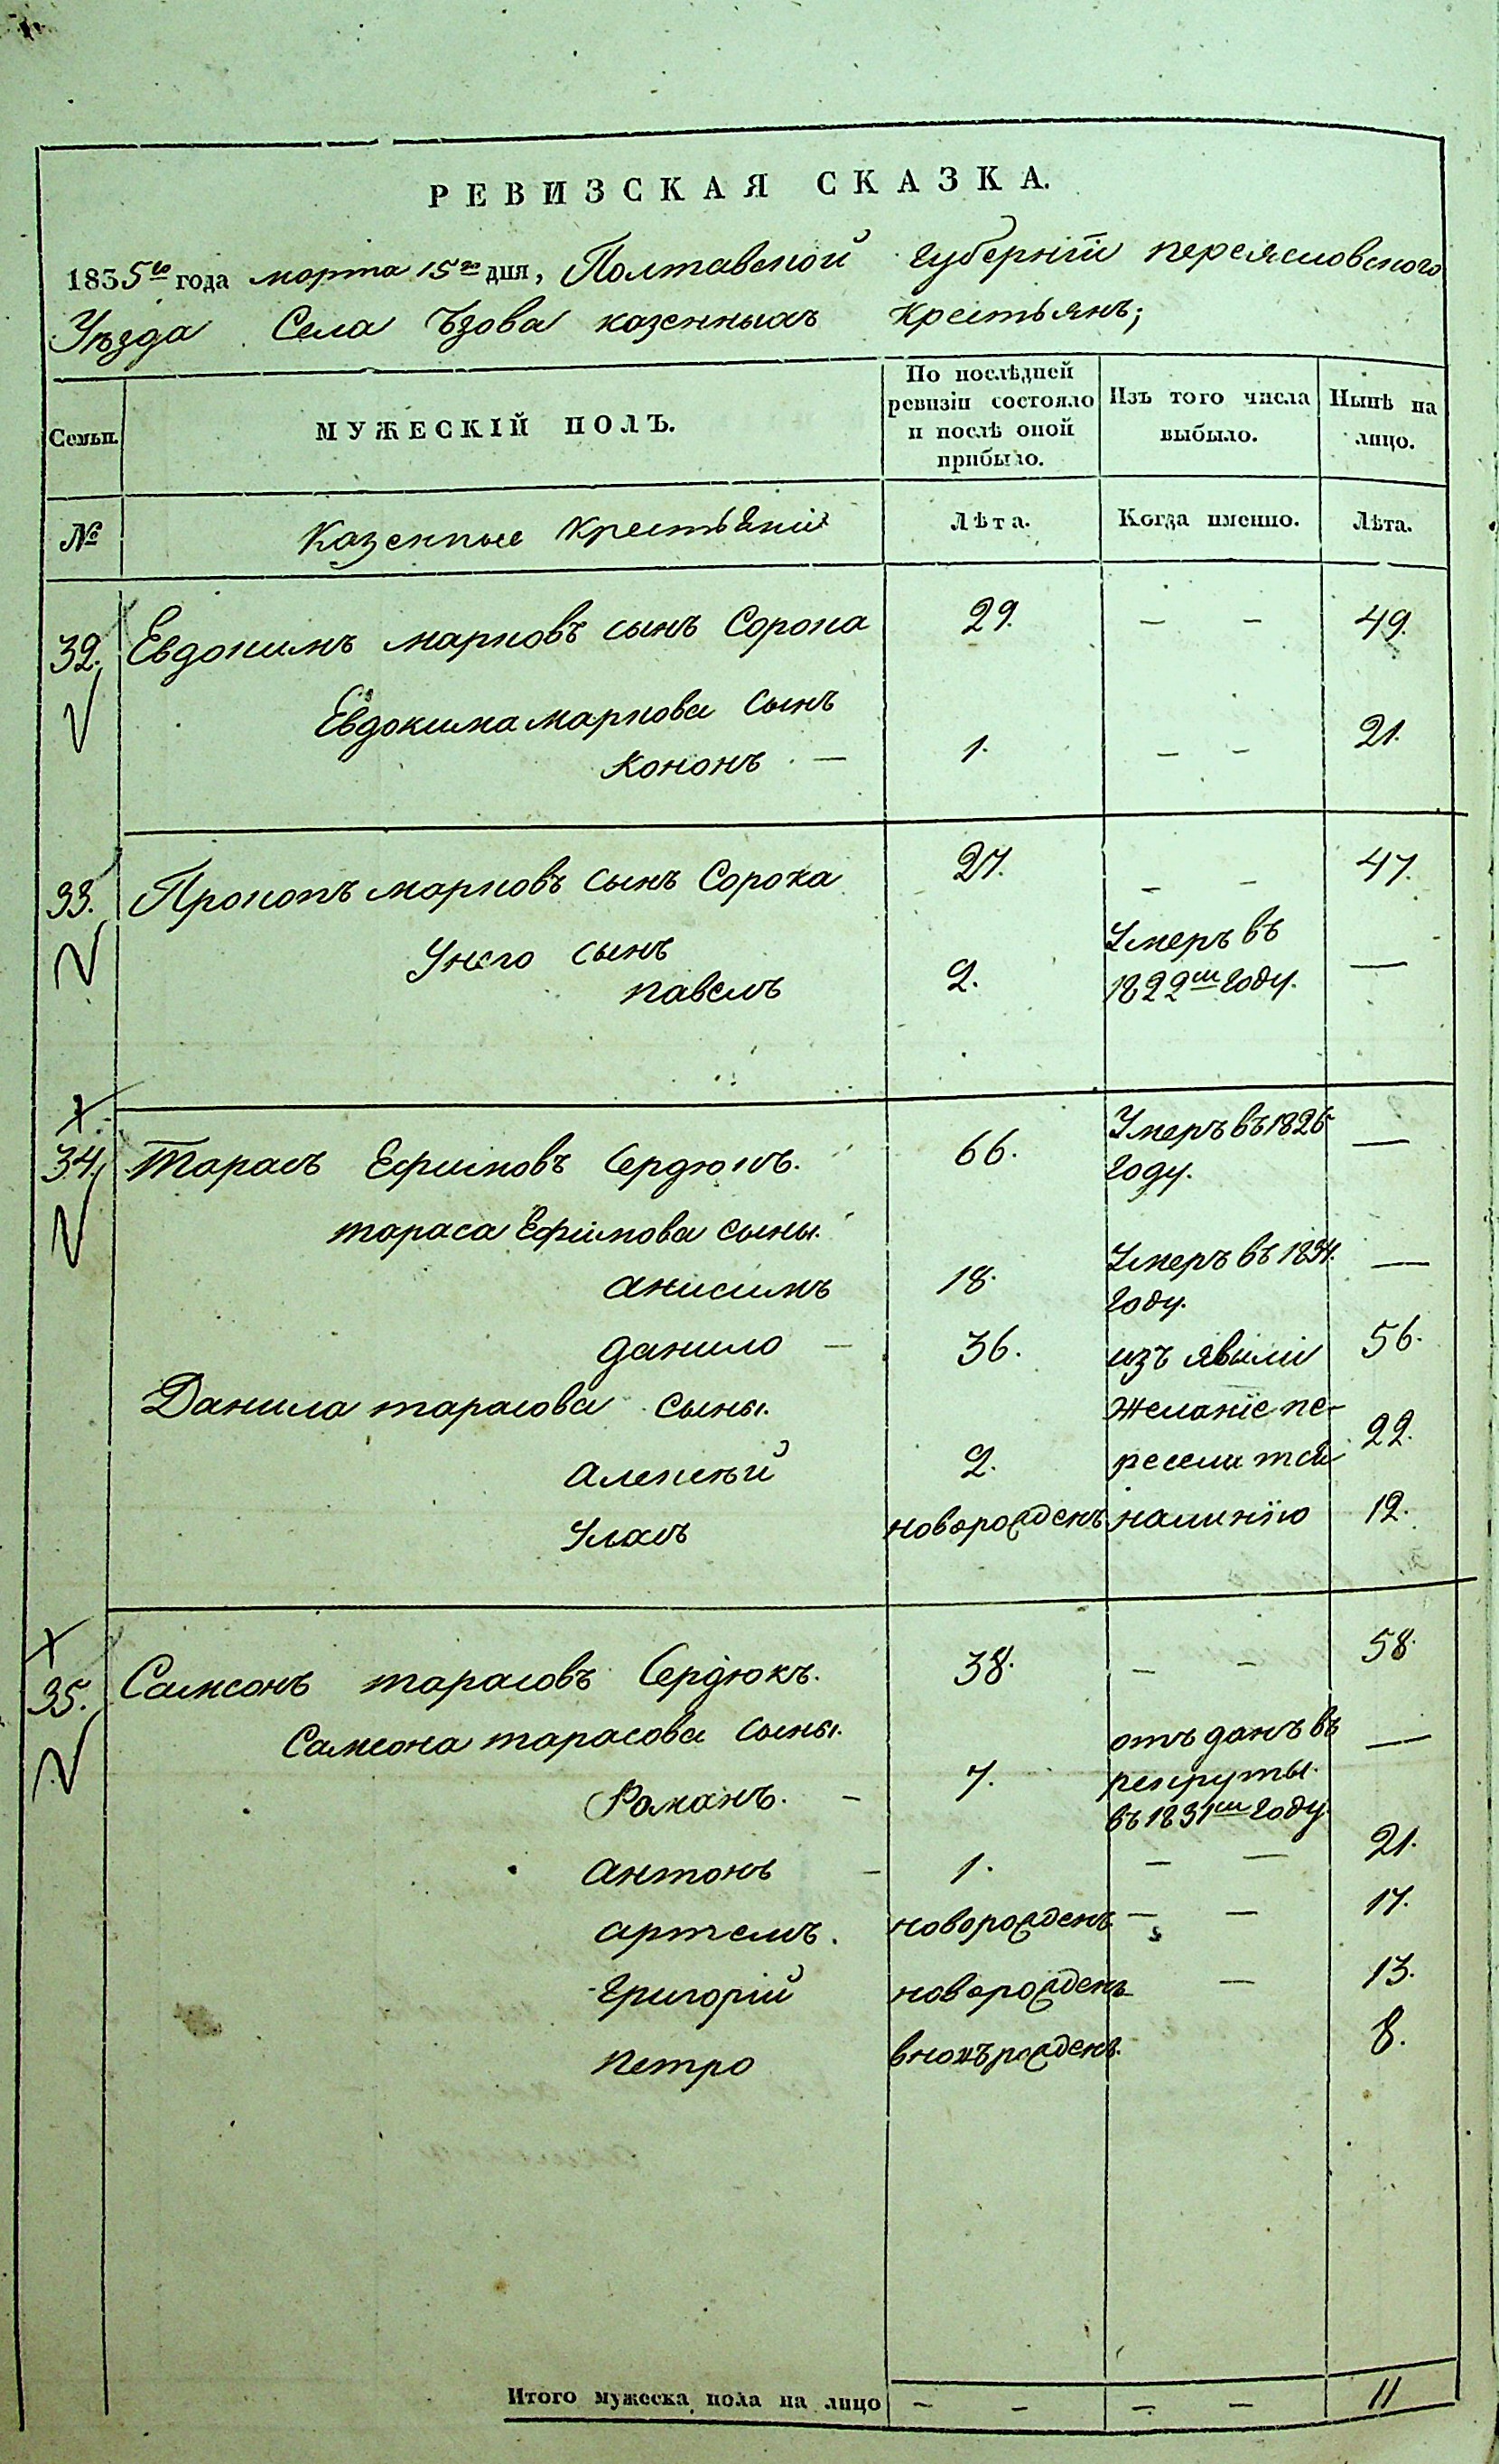 РЕВИЗСКАЯ СКАЗКА.
1835го года марта 15го дня, Полтавской губернїи переясловского
Уѣзда Села Ѣзова казенныхъ крестьянъ;
Семьи.
МУЖЕСКІЙ ПОЛЪ.
По послѣдней ревизіи состояло и послѣ оной прибыло.
Изъ того числа выбыло.
Нынѣ на лицо.
№ казенные крестьяни Лѣта. Когда именно. Лѣта.
32. Евдокимъ марковъ сынъ Сорока 29. — — 49.
Евдокима маркова сынъ
кононъ — 1. — — 21.
33. Прокопъ марковъ сынъ Сорока 27. — — 47.
Унего сынъ
павелъ 2. Умеръ въ 1822м году. —
34. Тарасъ Ефимовъ Сердюкъ. 66. Умеръ въ 1826 году. —
тараса Ефимова сыны.
анисимъ 18. Умеръ въ 1834. году. —
данило — 36. изъ явили 56.
Данила тарасова сыны. желанїе пе-
алексѣй 2. реселится 22.
Уласъ новорожденъ налинїю 12.
35. Самсонъ тарасовъ Сердюкъ. 38. — — 58.
Самсона тарасова сыны.
Романъ. — 7. отъ данъ въ рекруты. въ 1831м году. —
антонъ — 1. — — 21.
артемъ. новорожденъ — — 17.
григорїй новорожденъ — 13.
петро вновъ рожденъ. 8.
Итого мужеска пола на лицо — — — — 11